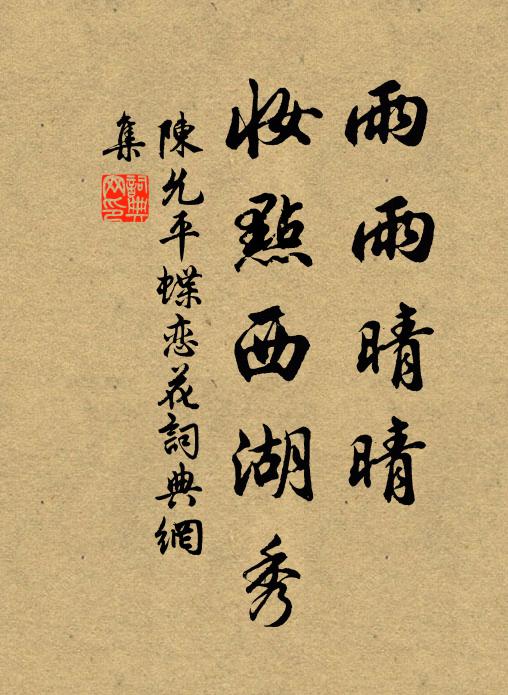 雨雨晴晴
妝點西湖秀
陳允平蝶恋花詞典網
集
詞典
网印